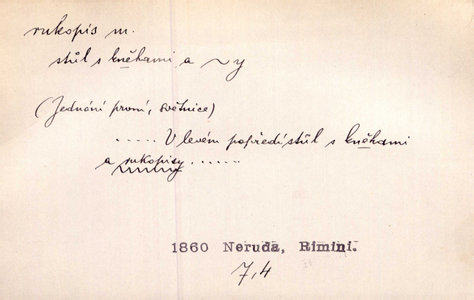 rukopis m.
stůl s kněhami a ~y
(Jednání první, světnice)
..... V levém popředí stůl s kněhami
a rukopisy ......
1860 Neruda, Rimini.
7,4